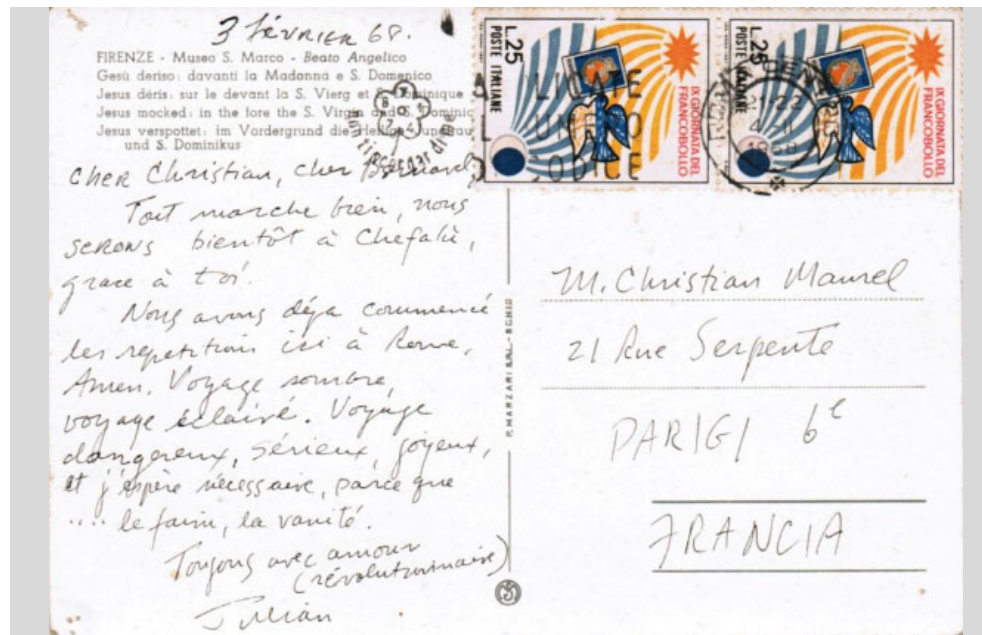 3 février 68.
FIRENZE - Museo S. Marco - Beato Angelico
Gesù deriso: davanti la Madonna e S. Domenico
Jesus déris: sur le devant la S. Vierg et S. Dominique
Jesus mocked: in the fore the S. Virgin and S. Dominic
Jesus verspottet: im Vordergrund die Heilige Jungfrau
und S. Dominikus
Cher Christian, cher Bernard,
Tout marche bien, nous
serons bientôt à Chefalù,
grace à toi.
Nous avons déja commencé
les repetitions ici à Rome,
Amen. Voyage sombre,
voyage éclairé. Voyage
dangereux, sérieux, joyeux,
et j'espère nécessaire, parce que
.... le faim, la vanité.
Toujours avec amour
(révolutionnaire)
Julian
P. MARZARI S.R.L. - SCHIO
L.25
POSTE ITALIANE
IX GIORNATA DEL
FRANCOBOLLO
L.25
POSTE ITALIANE
IX GIORNATA DEL
FRANCOBOLLO
21-22
1968
CODICE
M. Christian Maurel
21 Rue Serpente
PARIGI 6e
FRANCIA